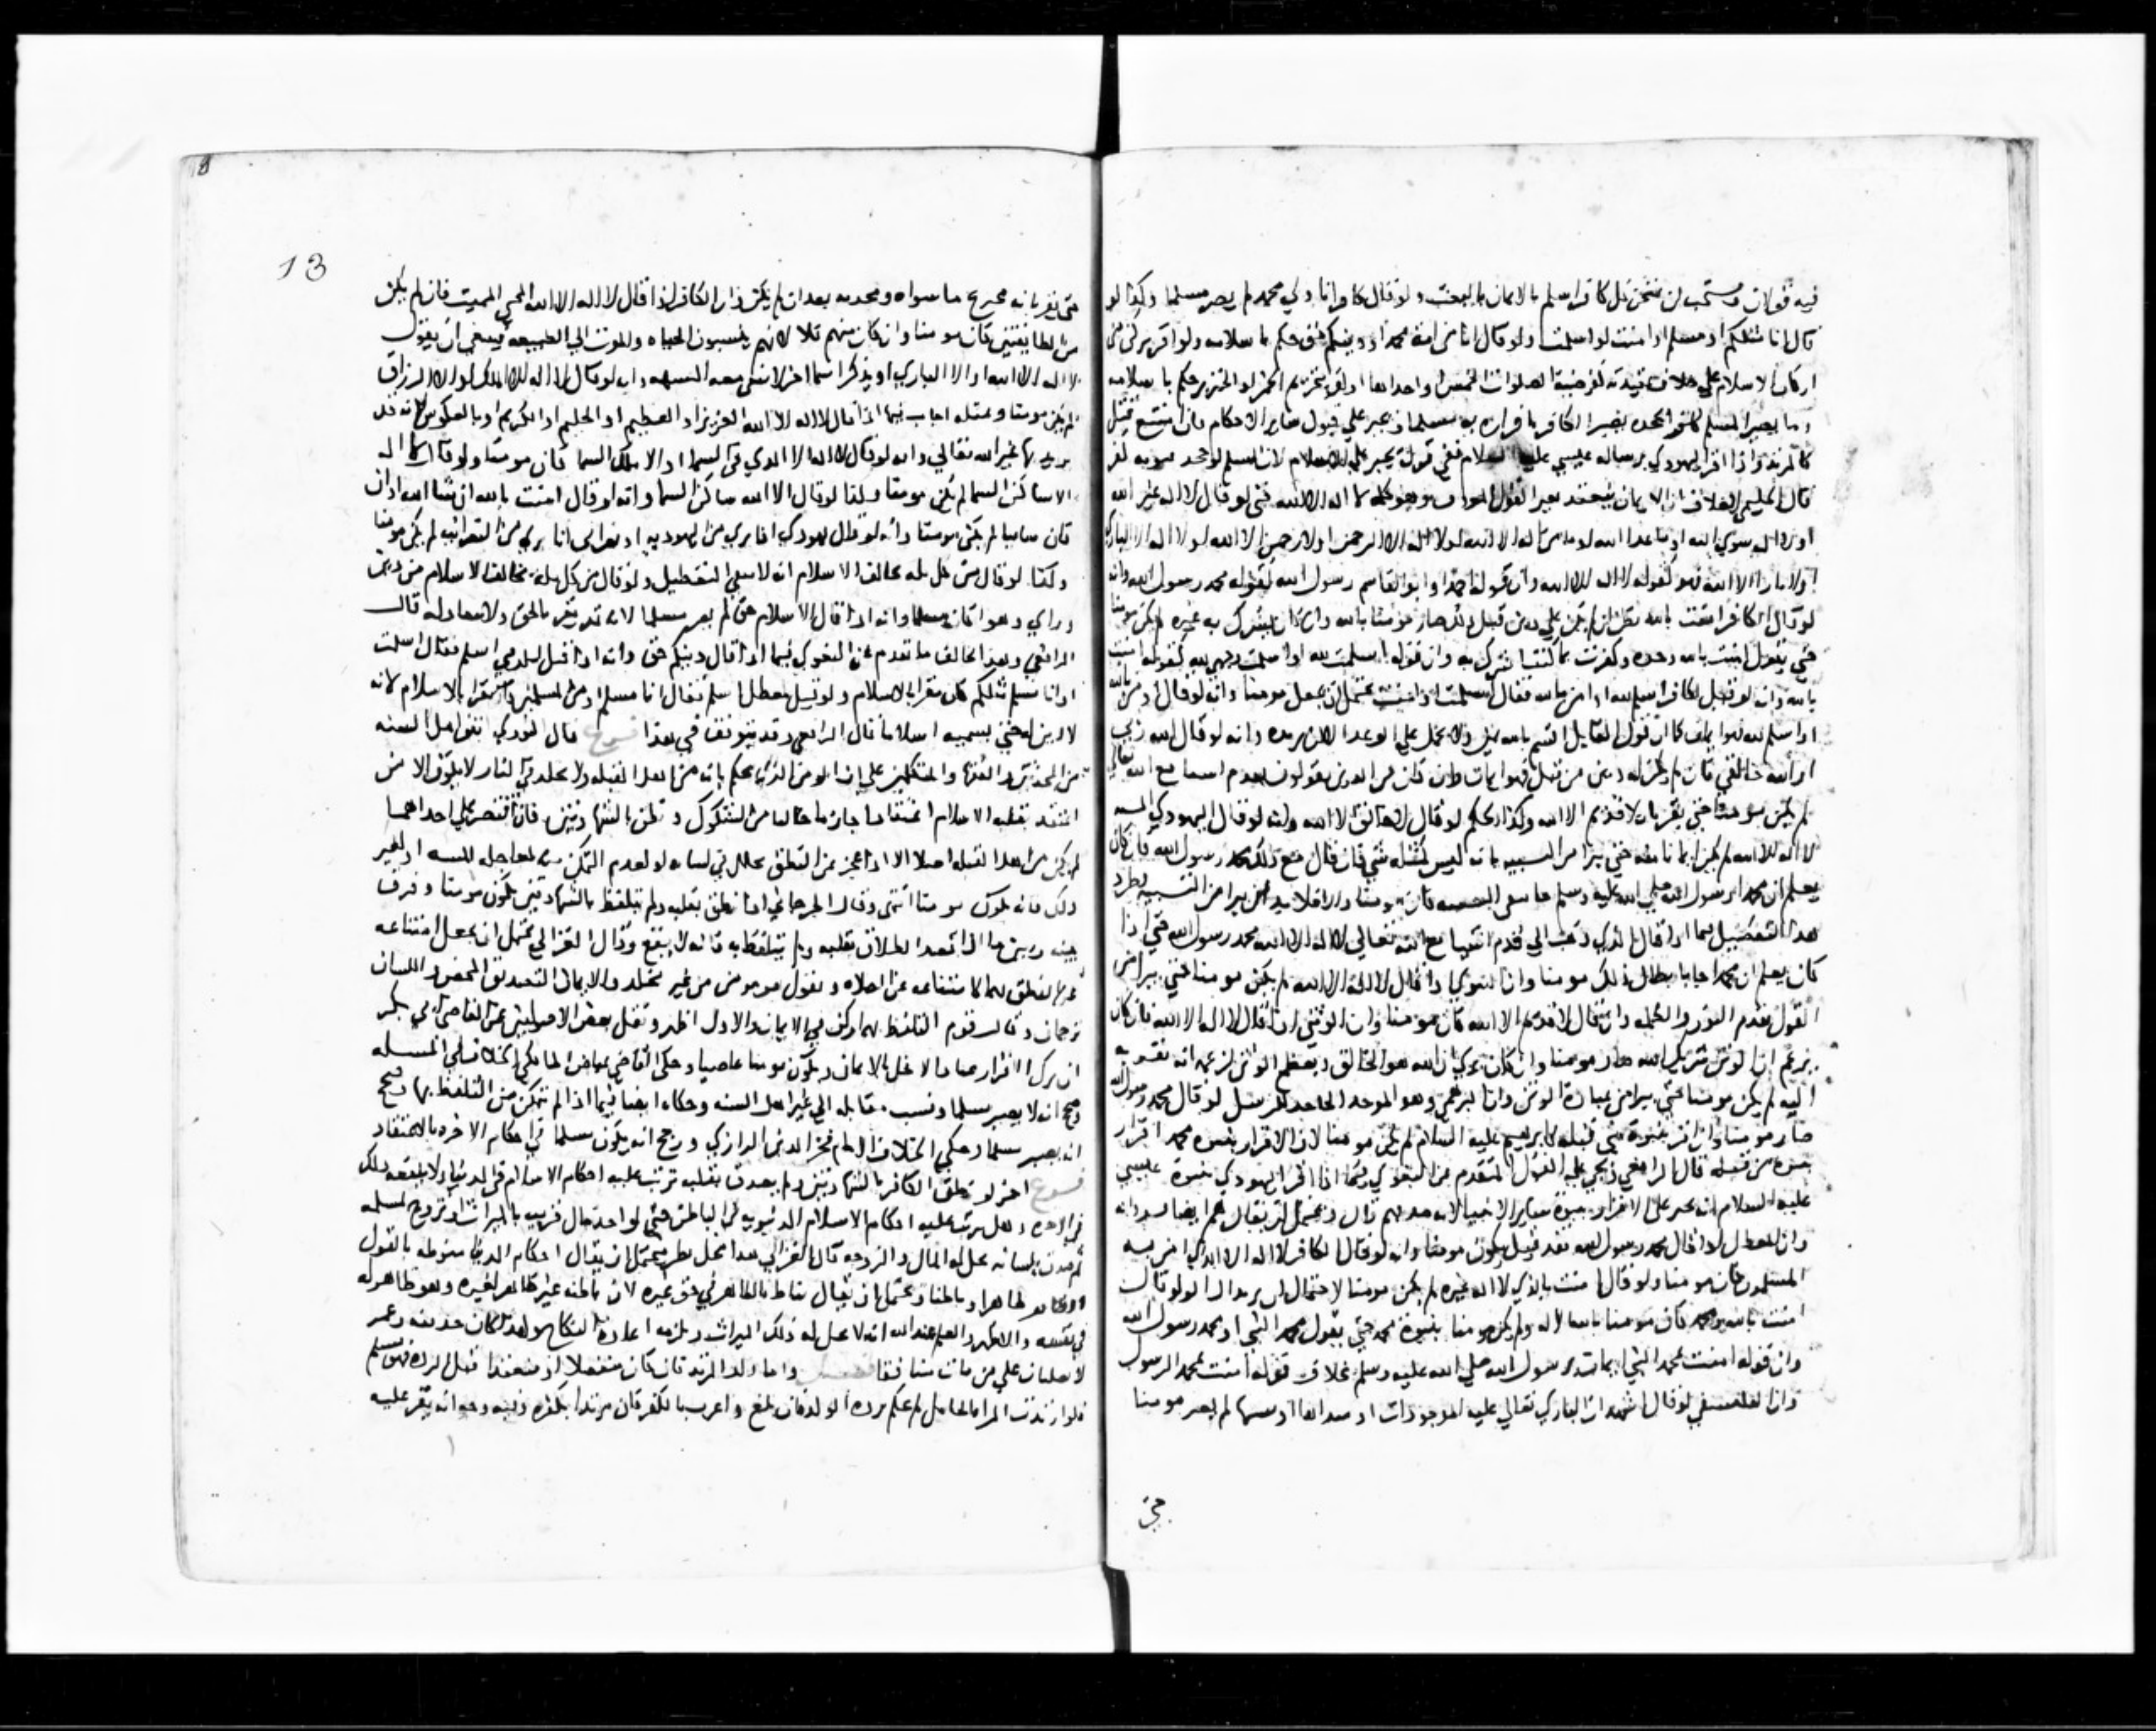 فيه قولان ويستحب ان يمتحن كل كافر اسلم بالايمان بالبعث ولو قال كافر انا ولي محمد لم يصر مسلما وكذا لو
قال انا مثلكم او مسلم او امنت او اسلمت ولو قال انا من امة محمد او دينكم حق حكم باسلامه ولو اقر بركن من
اركان الاسلام على خلاف عقيدته كفرضية الصلوات الخمس او احداها او اقر بتحريم الخمر او الخنزير حكم باسلامه
وما يصير المسلم كافرا بجحده يصير الكافر باقراره به مسلما ويجبر على قبول ساير الاحكام فان امتنع قتل
كالمرتد واذا اقر اليهودي برسالة عيسى عليه السلام ففي قول يجبر على الاسلام لان المسلم لو جحد نبوته كفر
قال الحليمي لا خلاف ان الايمان ينعقد بغير القول المعروف وهو كلمة لا اله الا الله حتى لو قال لا اله غير الله
او لا اله سوى الله او ما عدا الله او ما من اله الا الله او لا اله الا الرحمن او لا رحمن الا الله او لا اله الا الباري
او لا باري الا الله فهو كقوله لا اله الا الله وان قوله احمد او ابو القاسم رسول الله كقوله محمد رسول الله وانه
لو قال الكافر امنت بالله نظر ان لم يكن على دين قبل ذلك صار مومنا بالله وان كان يشرك به غيره لم يكن مومنا
حتى يقول امنت بالله وحده وكفرت بما كنت اشرك به وان قوله اسلمت لله او اسلمت وجهي لله كقوله امنت
بالله وانه لو قيل لكافر اسلم لله او امن بالله فقال اسلمت او امنت يحتمل ان يجعل مومنا وانه لو قال اومن بالله
او اسلم لله فهو ايمان كما ان قول القايل اقسم بالله يمين ولا يحمل على الوعد الا ان يريده وانه لو قال الله ربي
او الله خالقي فان لم يكن له دين من قبل فهو ايمان وان كان من الذين يقولون بقدم اشيا مع الله تعالى
لم يكن مومنا حتى يقر بان لا قديم الا الله وكذا الحكم لو قال لا خالق الا الله وانه لو قال اليهودي المشبه
لا اله الا الله لم يكن ايمانا منه حتى يتبرا من التشبيه بانه ليس كمثله شي فان قال مع ذلك محمد رسول الله فان كان
يعلم ان محمدا رسول الله صلى الله عليه وسلم جا بنفي التشبيه كان مومنا والا فلا بد ان يتبرا من التشبيه وطرد
هذا التفصيل فيما اذا قال الذي يذهب الى قدم اشيا مع الله تعالى لا اله الا الله محمد رسول الله حتى اذا
كان يعلم ان محمدا جا بابطال ذلك كان مومنا وان الثنوي اذا قال لا اله الا الله لم يكن مومنا حتى يتبرا من
القول بقدم النور والظلمة وان قال لا قديم الا الله كان مومنا وان الوثني اذا قال لا اله الا الله فان كان
يزعم ان الوثن شريك لله صار مومنا وان كان يرى ان الله هو الخالق ويعظم الوثن لزعمه انه يقربه
اليه لم يكن مومنا حتى يتبرا من عبادة الوثن وان البرهمي وهو الموحد الجاحد للرسل لو قال محمد رسول الله
صار مومنا وان اقر بنبوة نبي قبله كابرهيم عليه السلام لم يكن مومنا لان الاقرار بنبوة محمد اقرار
بنبوة من قبله قال الرافعي ويجي عليه القول المتقدم عن البغوي فيما اذا اقر اليهودي بنبوة عيسى
عليه السلام انه يجبر على الاقرار بنبوة ساير الانبيا لانه صدقهم قال ويحتمل ان يقال هم ايضا صدقوه وانه
وان المعطل اذا قال محمد رسول الله فقد قيل يكون مومنا وانه لو قال الكافر لا اله الا الذي امن به
المسلمون كان مومنا ولو قال امنت بالذي لا اله غيره لم يكن مومنا لاحتمال ان يريد الوثن ولو قال
امنت بالله وبمحمد كان مومنا بالله لا اله ولم يكن مومنا بنبوة محمد حتى يقول محمد النبي او محمد رسول الله
وان قوله امنت بمحمد النبي ايمان برسول الله صلى الله عليه وسلم بخلاف قوله امنت بمحمد الرسول
وان الفلسفي لو قال اشهد ان الباري تعالى علة الموجودات او مبداها او سببها لم يصر مومنا
حتى
13
حتى يقر بانه مخترع ما سواه ومحدثه بعد ان لم يكن وان الكافر اذا قال لا اله الا الله المحيي المميت فان لم يكن
من الطبايعيين كان مومنا وان كان منهم فلا لانهم ينسبون الحياه والموت الى الطبيعه فينبغي ان يقول
لا اله الا الله او الا الباري او يذكر اسما اخر لا يبقى معه الشبهه وانه لو قال لا اله الا الملك او الا الرزاق
لم يكن مومنا وبمثله اجاب فيما اذا قال لا اله الا الله العزيز او العظيم او الحليم او الكريم او بالعكوس لانه قد
يريد بها غير الله تعالى وانه لو قال لا اله الا الذي في السما او الا ملك السما كان مومنا ولو قال لا اله
الا ساكن السما لم يكن مومنا وكذا لو قال الا الله ساكن السما وانه لو قال امنت بالله ان شا الله او ان
كان صابيا لم يكن مومنا وانه لو قال يهودي انا بري من اليهودية او نصراني انا بري من النصرانية لم يكن مومنا
وكذا لو قال من كل مله تخالف الاسلام انه لا ينفي التعطيل ولو قال من كل ملة تخالف الاسلام من دين
وراي وهوا كان مسلما وانه اذا قال الاسلام حق لم يصر مسلما لانه قد يقر بالحق ولا ينقاد له قال
الرافعي وهذا يخالف ما تقدم عن البغوي فيما اذا قال دينكم حق وانه اذا قيل للذمي اسلم فقال اسلمت
او انا مسلم مثلكم كان مقرا بالاسلام ولو قيل لمعطل اسلم فقال انا مسلم او من المسلمين كان مقرا بالاسلام لانه
لا دين له حتى يسميه اسلاما قال الرافعي وقد يتوقف في هذا فروع قال النووي اتفق اهل السنه
من المحدثين والفقها والمتكلمين على ان المومن الذي يحكم بانه من اهل القبله ولا يخلد في النار لا يكون الا من
اعتقد بقلبه الاسلام اعتقادا جازما خاليا من الشكوك ونطق بالشهادتين فان اقتصر على احداهما
لم يكن من اهل القبله اصلا الا اذا عجز عن النطق بخلل في لسانه او لعدم التمكن منه لمعاجلة المنيه او لغير
ذلك فانه يكون مومنا انتهى وقال الجرجاني اذا نطق بقلبه ولم يتلفظ بالشهادتين يكون مومنا وفرق
بينه وبين ما اذا قصد الطلاق بقلبه ولم يتلفظ به فانه لا يقع وقال الغزالي يحتمل ان يجعل امتناعه
عن النطق بهما كامتناعه عن الصلاه ونقول هو مومن من غير مخلد والايمان التصديق المحض واللسان
ترجمان وقال قوم التلفظ بهما ركن في الايمان والاول اظهر ونقل بعض الاصوليين عن القاضي ابي بكر
ان ترك الاقرار عنادا لا يخل بالايمان ويكون مومنا عاصيا وحكى القاضي عياض المالكي الخلاف في المسله
وصحح انه لا يصير مسلما ونسب مقابله الى غير اهل السنه وحكاه ايضا فيما اذا لم يتمكن من التلفظ بها وصحح
انه يصير مسلما وحكى الخلاف الامام فخر الدين الرازي ورجح انه يكون مسلما في احكام الاخره بالاعتقاد
فروع اخر لو نطق الكافر بالشهادتين ولم يصدق بقلبه ترتب عليه احكام الاسلام في الدنيا ولا ينفعه ذلك
في الاخره وهل يترتب عليه احكام الاسلام الدنيويه في الباطن حتى لو اخذ مال قريبه بالميراث او تزوج مسلمه
ثم صدق بلسانه يحل له المال والزوجه قال الغزالي هذا محل نظر يحتمل ان يقال احكام الدنيا منوطه بالقول
الظاهر ظاهرا وباطنا ويحتمل ان يقال تناط بالظاهر في حق غيره لان باطنه غير ظاهر لغيره وهو ظاهر له
في نفسه والاظهر والعلم عند الله انه لا يحل له ذلك الميراث ويلزمه اعادة النكاح ولهذا كان حذيفه وعمر
لا يصليان على من مات منافقا فصل واما ولد المرتد فان كان منفصلا او منعقدا قبل الرده فهو مسلم
فلو ارتدت المراه الحامل لم يحكم برده الولد فان بلغ واعرب بالكفر كان مرتدا بكفره وفيه وجه انه يقر عليه